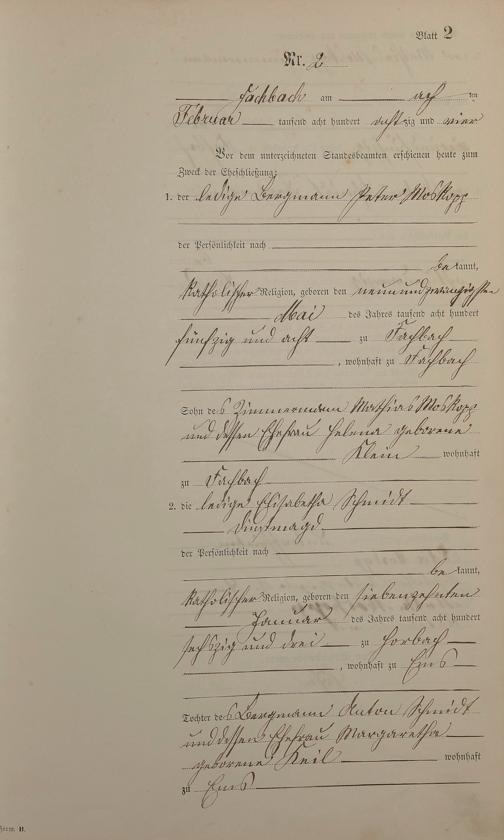 Blatt 2
Nr. 2
Fachbach am ach ten
Februar tausend acht hundert achtzig und vier
Vor dem unterzeichneten Standesbeamten erschienen heute zum
Zweck der Eheschließung:
1. der ledige Bergmann Peter Moskopp
der Persönlichkeit nach
be kannt,
katholischer Religion, geboren den neunundzwanzigsten
Mai des Jahres tausend acht hundert
fünfzig und acht zu Fachbach
, wohnhaft zu Fachbach
Sohn des Zimmermann Mathias Moskopp
und dessen Ehefrau Helena geborene
Klein wohnhaft
zu Fachbach
2. die ledige Elisabetha Schmidt
Dinstmagd
der Persönlichkeit nach
be kannt,
katholischer Religion, geboren den siebenzehnten
Januar des Jahres tausend acht hundert
sechszig und drei zu Horbach
, wohnhaft zu Ems
Tochter des Bergmann Anton Schmidt
und dessen Ehefrau Margaretha
geborene Keil wohnhaft
zu Ems
Form. B.